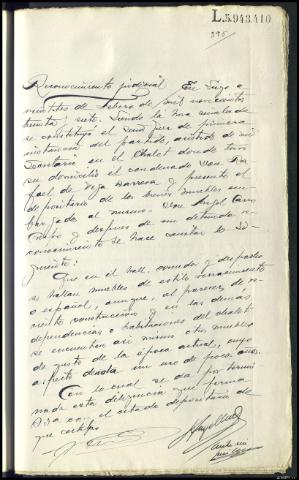 L.5.943.410
396
Reconocimiento judicial. En Lugo a
veintitres de febrero de mil novecientos
treinta y siete. Siendo la hora señalada
se constituyó el Señor Juez de primera
instancia del partido, asistido de mi
Secretario en el Chalet donde tuvo
su domicilio el condenado Don Ra-
fael de Vega Barrera y presente el
depositario de los bienes muebles em-
bargados al mismo, Don Angel Carro
y despues de un detenido re-
conocimiento se hace constar lo si-
guiente:
Que en el hall, comedor y despacho
se hallan muebles de estilo renacimiento
español, aunque, al parecer, de re-
ciente construcción y en las demas
dependencias o habitaciones del chalet
se encuentran asi mismo otros muebles
de gusto de la época actual, cuyo
aspecto denota un uso de pocos años.
Con lo cual se da por termi-
nada esta diligencia que firma
Sria con el citado depositario de
que certifico